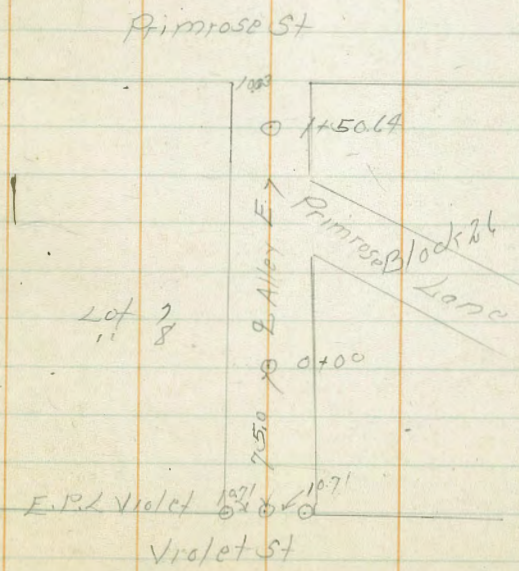 Primrose St
10.03
1+50.64
Primrose Block 26
Lane
℄ Alley E7
Lot 7
" 8
0+00
75.0
E.P.L Violet 10.71 10.71
Violet St